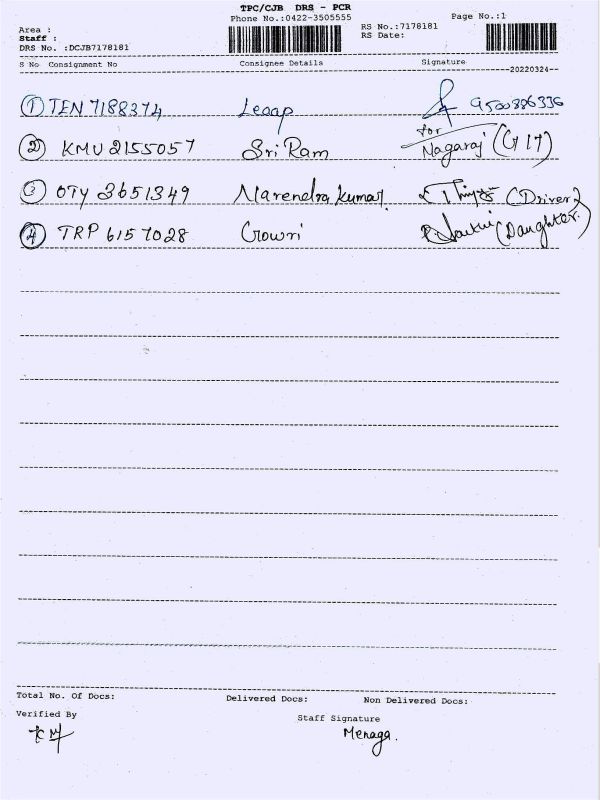 TPC/CJB DRS - PCR
Phone No.:0422-3505555 Page No.:1
Area : RS No.:7178181
Staff : RS Date:
DRS No. :DCJB7178181
S No Consignment No Consignee Details Signature
20220324
1 TEN 7188374 Leaap 9500336336
for
2 KMU 2155057 Sri Ram Nagaraj
3 OTY 3651349 Narendra kumar (Driver)
4 TRP 6157028 Gowri (Daughter)
Total No. Of Docs: Delivered Docs: Non Delivered Docs:
Verified By
Staff Signature
Menaga.